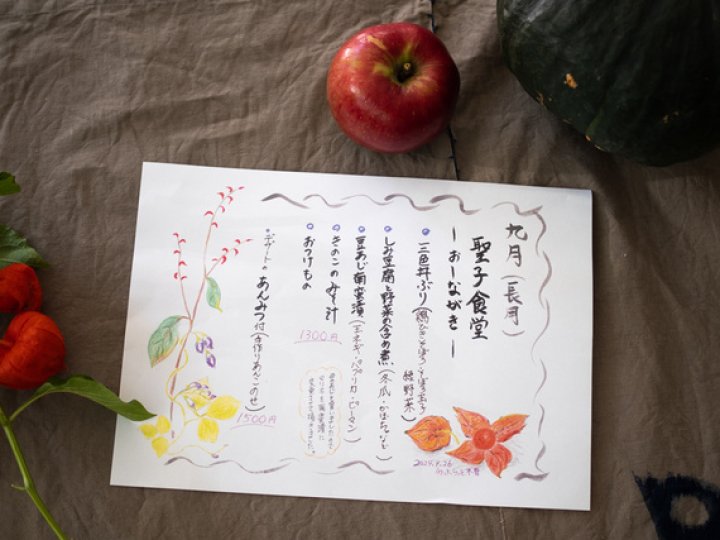 九月(長月)
聖子食堂
ーおーながきー
三色丼ぶり(鶏ひきそぼろ・そぼろ玉子
緑野菜)
しみ豆腐と野菜の含め煮(冬瓜・かぼちゃなど)
豆あじ南蛮漬(玉ネギ・パプリカ・ピーマン)
きのこのみそ汁
1300円
おつけもの
デザートのあんみつ付(手作りあんこのせ)
1500円